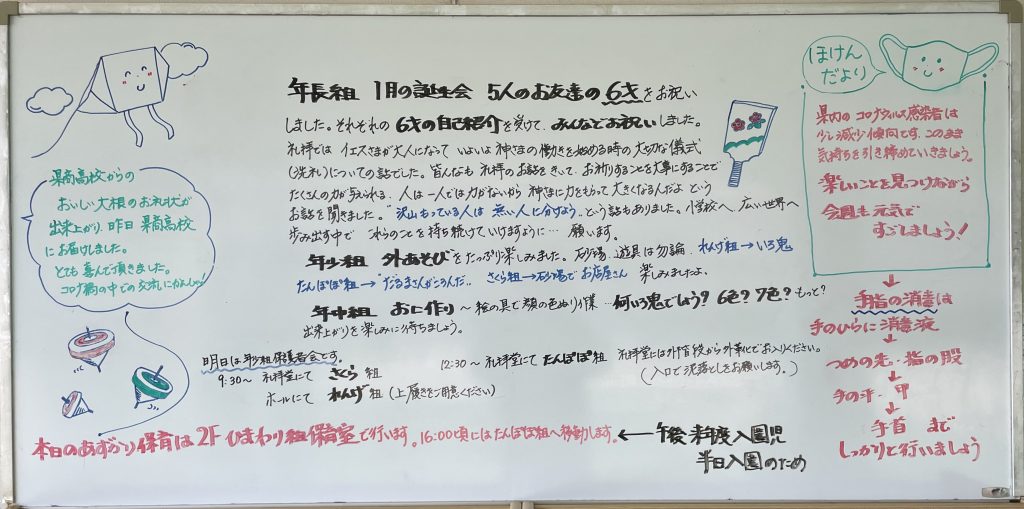 年長組 1月の誕生会 5人のお友達の 6才をお祝い
しました。それぞれの 6才の自己紹介を受けて、みんなでお祝いしました。
礼拝では イエスさまが大人になって いよいよ神さまの働きを始める時の大切な儀式
(洗礼)についての話でした。皆んなも 礼拝のお話をきいて、お祈りすることを大事にすることで
たくさんの力が与えられる、人は一人では力がないから 神さまに力をもらって大きくなるんだよ という
お話を聞きました。"沢山もっている人は 無い人に分けよう" という話もありました。小学校へ、広い世界へ
歩み出す中で これらのことを持ち続けていけますように… 願います。
年少組 外あそびをたっぷり楽しみました。砂場、遊具は勿論、れんげ組→いろ鬼
たんぽぽ組→"だるまさんがころんだ" さくら組→砂場でお店屋さん 楽しみましたよ。
年中組 おに作り ~絵の具で顔の色ぬり作業…何いろ鬼でしょう? 6色? 7色? もっと?
出来上がりを楽しみに待ちましょう。
県商高校からの
おいしい大根のお礼状が
出来上がり、昨日 県商高校
にお届けしました。
とても喜んで頂きました。
コロナ禍の中での交流にかんしゃ!
明日は年少組保護者会です。
9:30~ 礼拝堂にて さくら組
ホールにて れんげ組 (上履きをご用意ください)
12:30~礼拝堂にて たんぽぽ組 礼拝堂には外階段から外靴でお入りください。
(入口で泥落としをお願いします。)
本日のあずかり保育は2Fひまわり組保育室で行います。16:00頃にはたんぽぽ組へ移動します。←午後 来年度入園児
半日入園のため
ほけん
だより
県内のコロナウィルス感染者は
少し減少傾向です。このまま
気持ちを引き締めていきましょう。
楽しいことを見つけながら
今週も元気で
すごしましょう!
↓
手指の消毒は
手のひらに消毒液
↓
つめの先・指の股
↓
手の平・甲
↓
手首 まで
しっかりと行いましょう